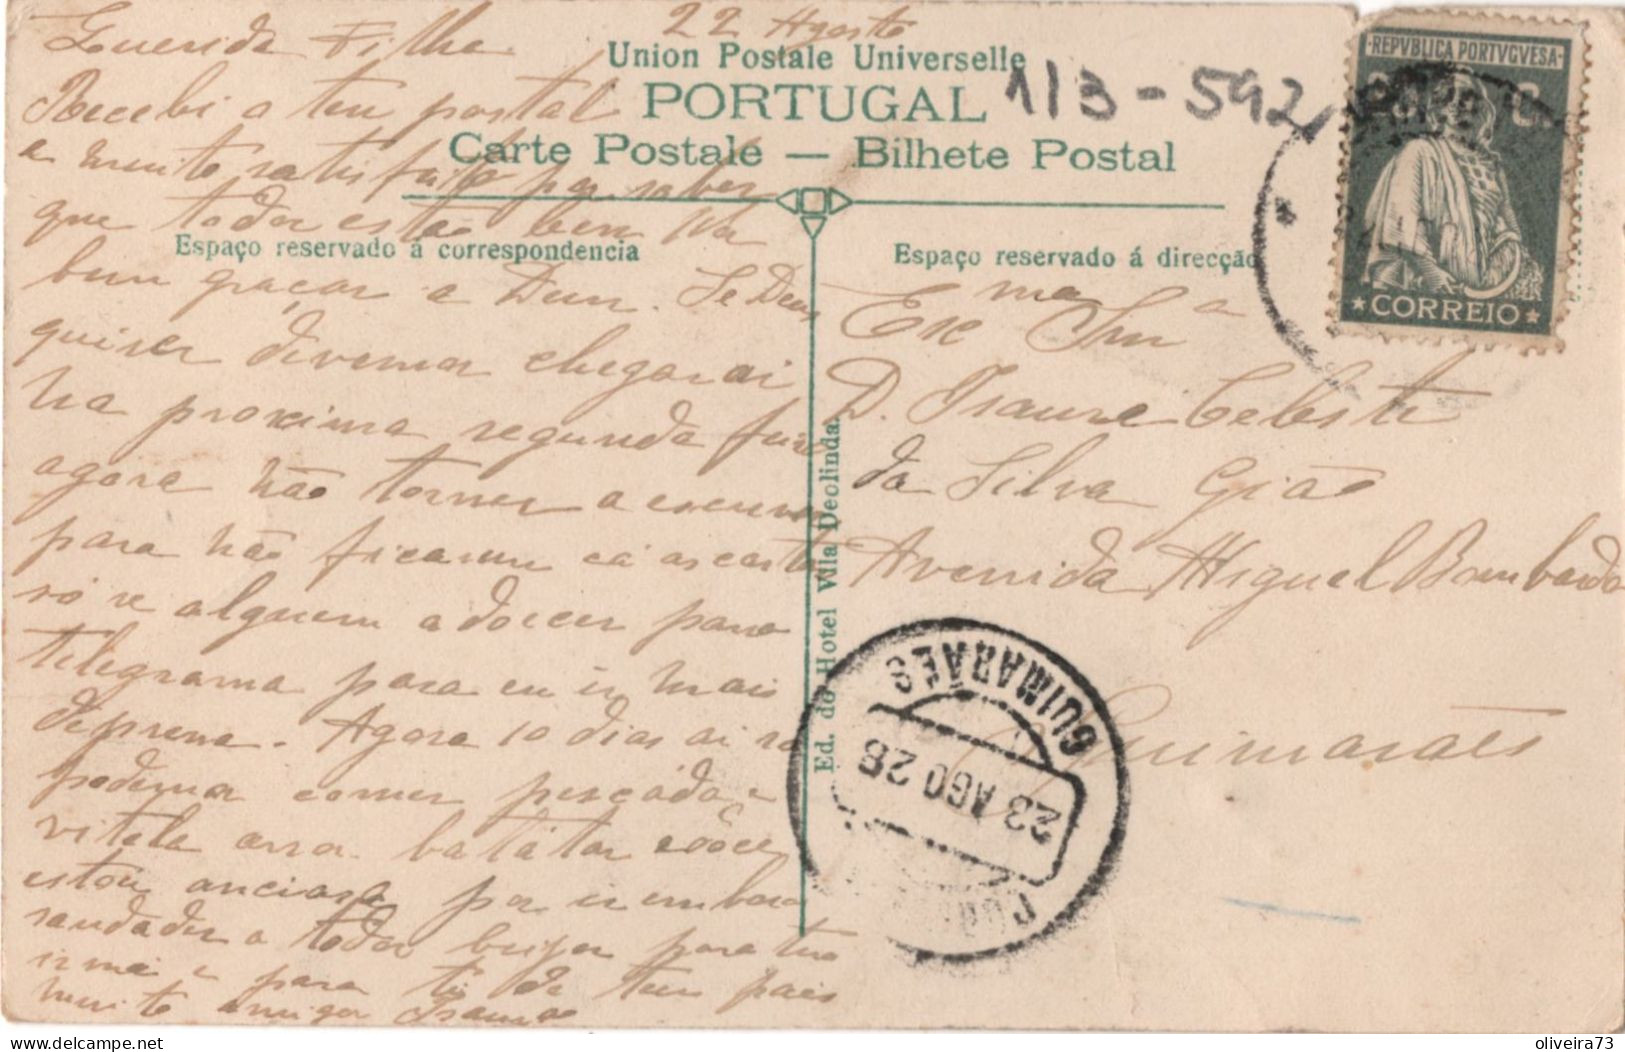 22 Agosto
Querida Filha
Recebi o teu postal
e muito satisfeita por saber
que todos estão bem
bem graças a Deus. Se Deus
quizer devemos chegar ai
na proxima segunda feira
agora não torner a escrever
para não ficarem cá as cartas
só se alguem adoecer para
telegrama para eu ir mais
depresa. Agora 10 dias ai só
podemos comer pescada e
vitela batatas
estou anciosa por ir embora
saudades a todos beijos para tua
irmã e para ti de teus paes
muito amigos Isaura
Union Postale Universelle
PORTUGAL
Carte Postale — Bilhete Postal
1/3 - 592
Espaço reservado á correspondencia
Espaço reservado á direcção
Ed. do Hotel Vila Deolinda.
REPVBLICA PORTVGVESA
CORREIO
Exma Snra
D. Isaura Celeste
da Silva Gião
Avenida Miguel Bombarda
Guimarães
GUIMARÃES
23 AGO 28
oliveira73
delcampe.net